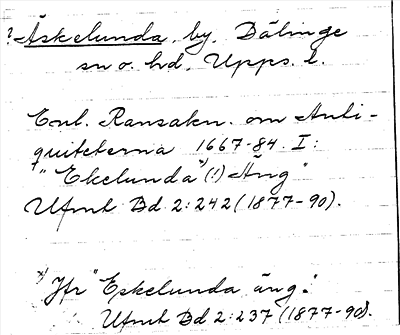 ? Äskelunda, by, Dälinge
sn o. hd, Upps. l.
Enl. Ransakn. om Anti-
quiteterna 1667-84. I:
"Ekelunda x) (!) Äng"
Ufmt Bd 2:242 (1877-90).
x) Jfr "Eskelunda äng".
Ufmt Bd 2:237 (1877-90).